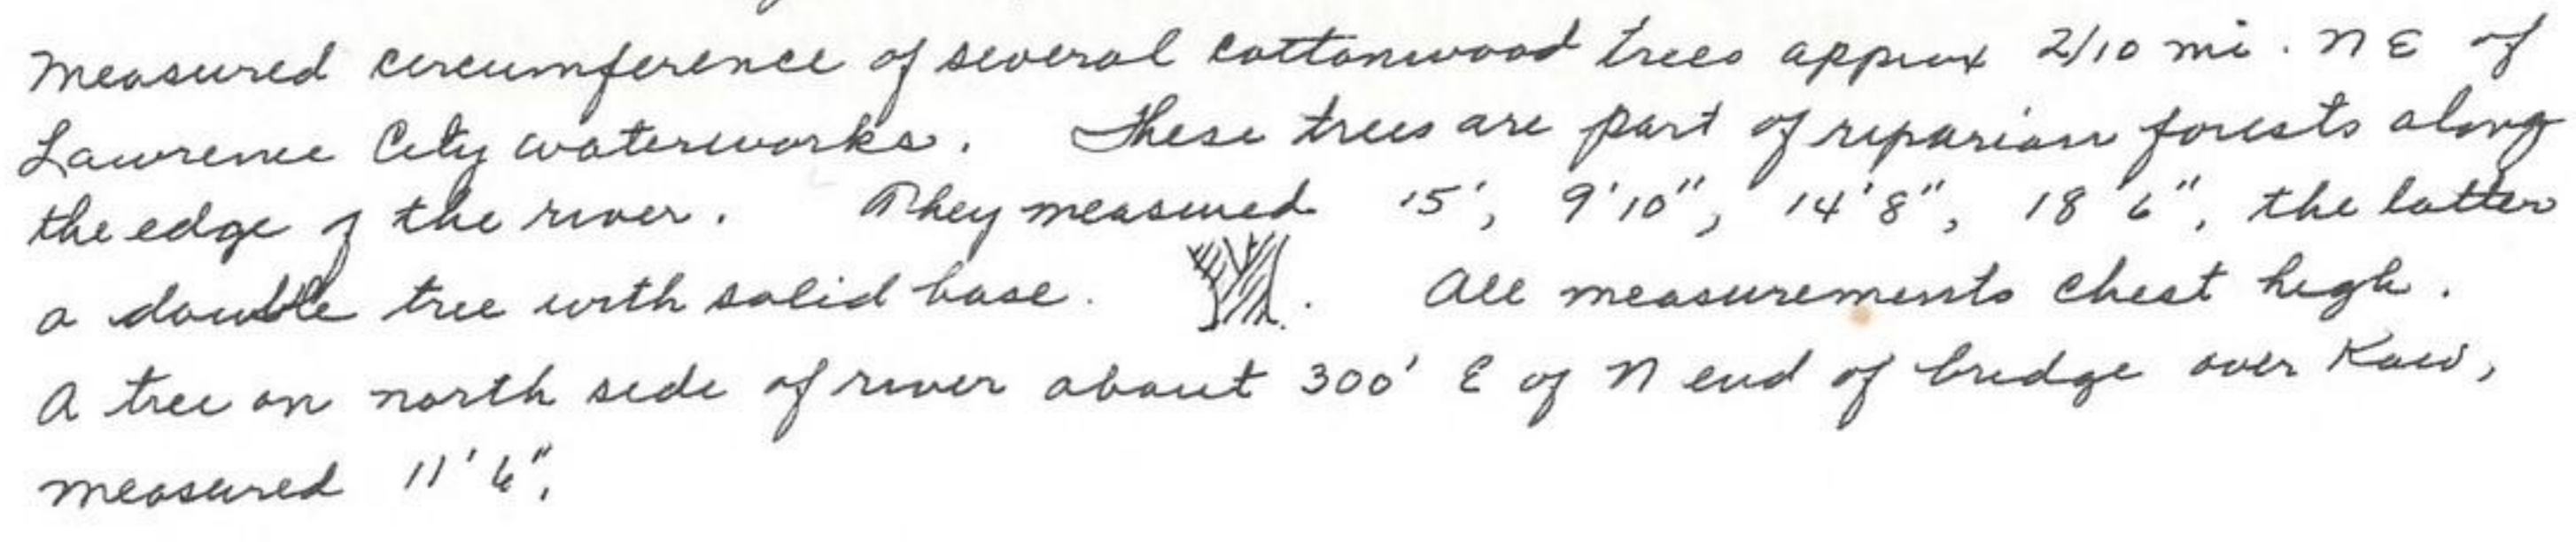 Measured circumference of several cottonwood trees approx 2/10 mi. NE of
Lawrence City waterworks. These trees are part of riparian forests along
the edge of the river. They measured 15', 9'10", 14'8", 18'6", the latter
a double tree with solid base. . All measurements chest high.
A tree on north side of river about 300' E of N end of bridge over Kaw,
measured 11'6".